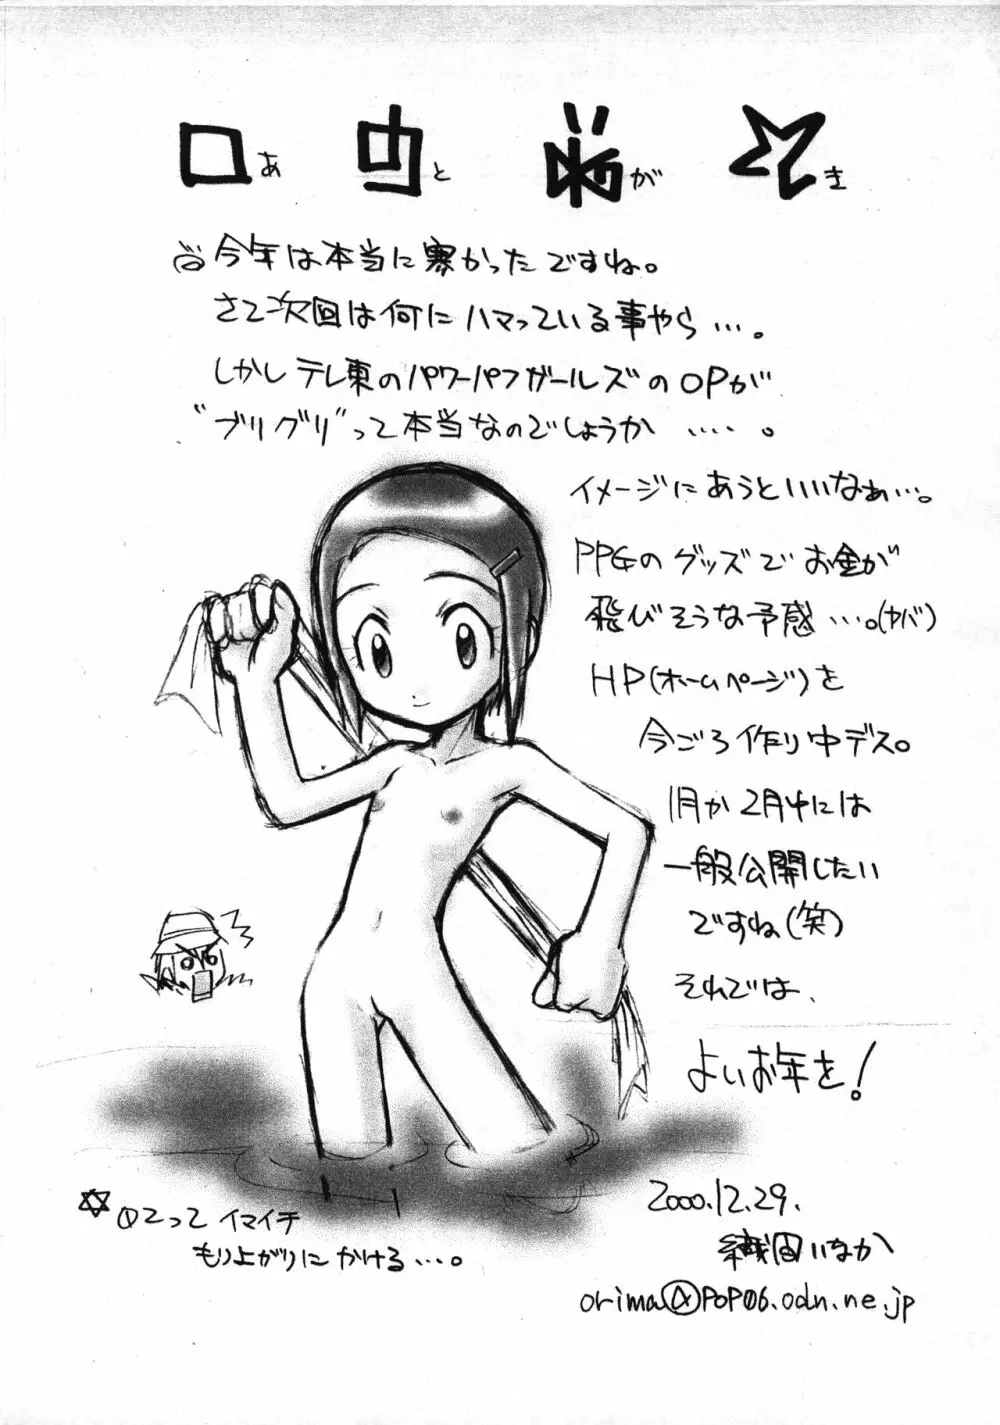 あとがき
今年は本当に寒かったですね。
さて次回は何にハマっている事やら…。
しかしテレ東のパワーパフガールズのOPが
"ブリグリ"って本当なのでしょうか …. 。
イメージにあうといいなぁ…。
PPGのグッズでお金が
飛びそうな予感…。(ヤバ)
HP(ホームページ)を
今ごろ作り中デス。
1月か2月中には
一般公開したい
ですね(笑)
それでは、
よいお年を!
2000.12.29.
もり上がりにかける…。